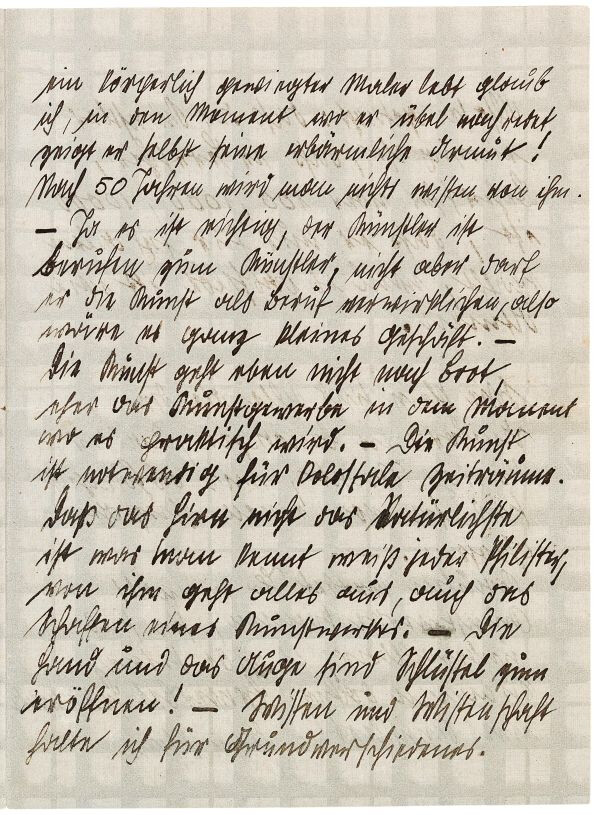 ein körperlich gewiegter Maler lebt glaub
ich, in den Moment wo er übel nachredet
zeigt er selbst seine erbärmliche Armut!
Nach 50 Jahren wird man nichts wissen von ihm.
– Ja es ist richtig, der Künstler ist
berufen zum Künstler, nicht aber darf
er die Kunst als Beruf verwirklichen, also
wäre es ganz kleines Geschäft. –
Die Kunst geht eben nicht nach Brot,
eher das Kunstgewerbe in dem Moment
wo es praktisch wird. – Die Kunst
ist notwendig für kolossale Zeiträume.
Daß das Hirn nicht das Natürlichste
ist was man kennt weiß jeder Philister,
von ihm geht alles aus, auch das
Schaffen eines Kunstwerkes. – Die
Hand und das Auge sind Schlüssel zum
eröffnen! – Wissen und Wissenschaft
halte ich für Grundverschiedenes.